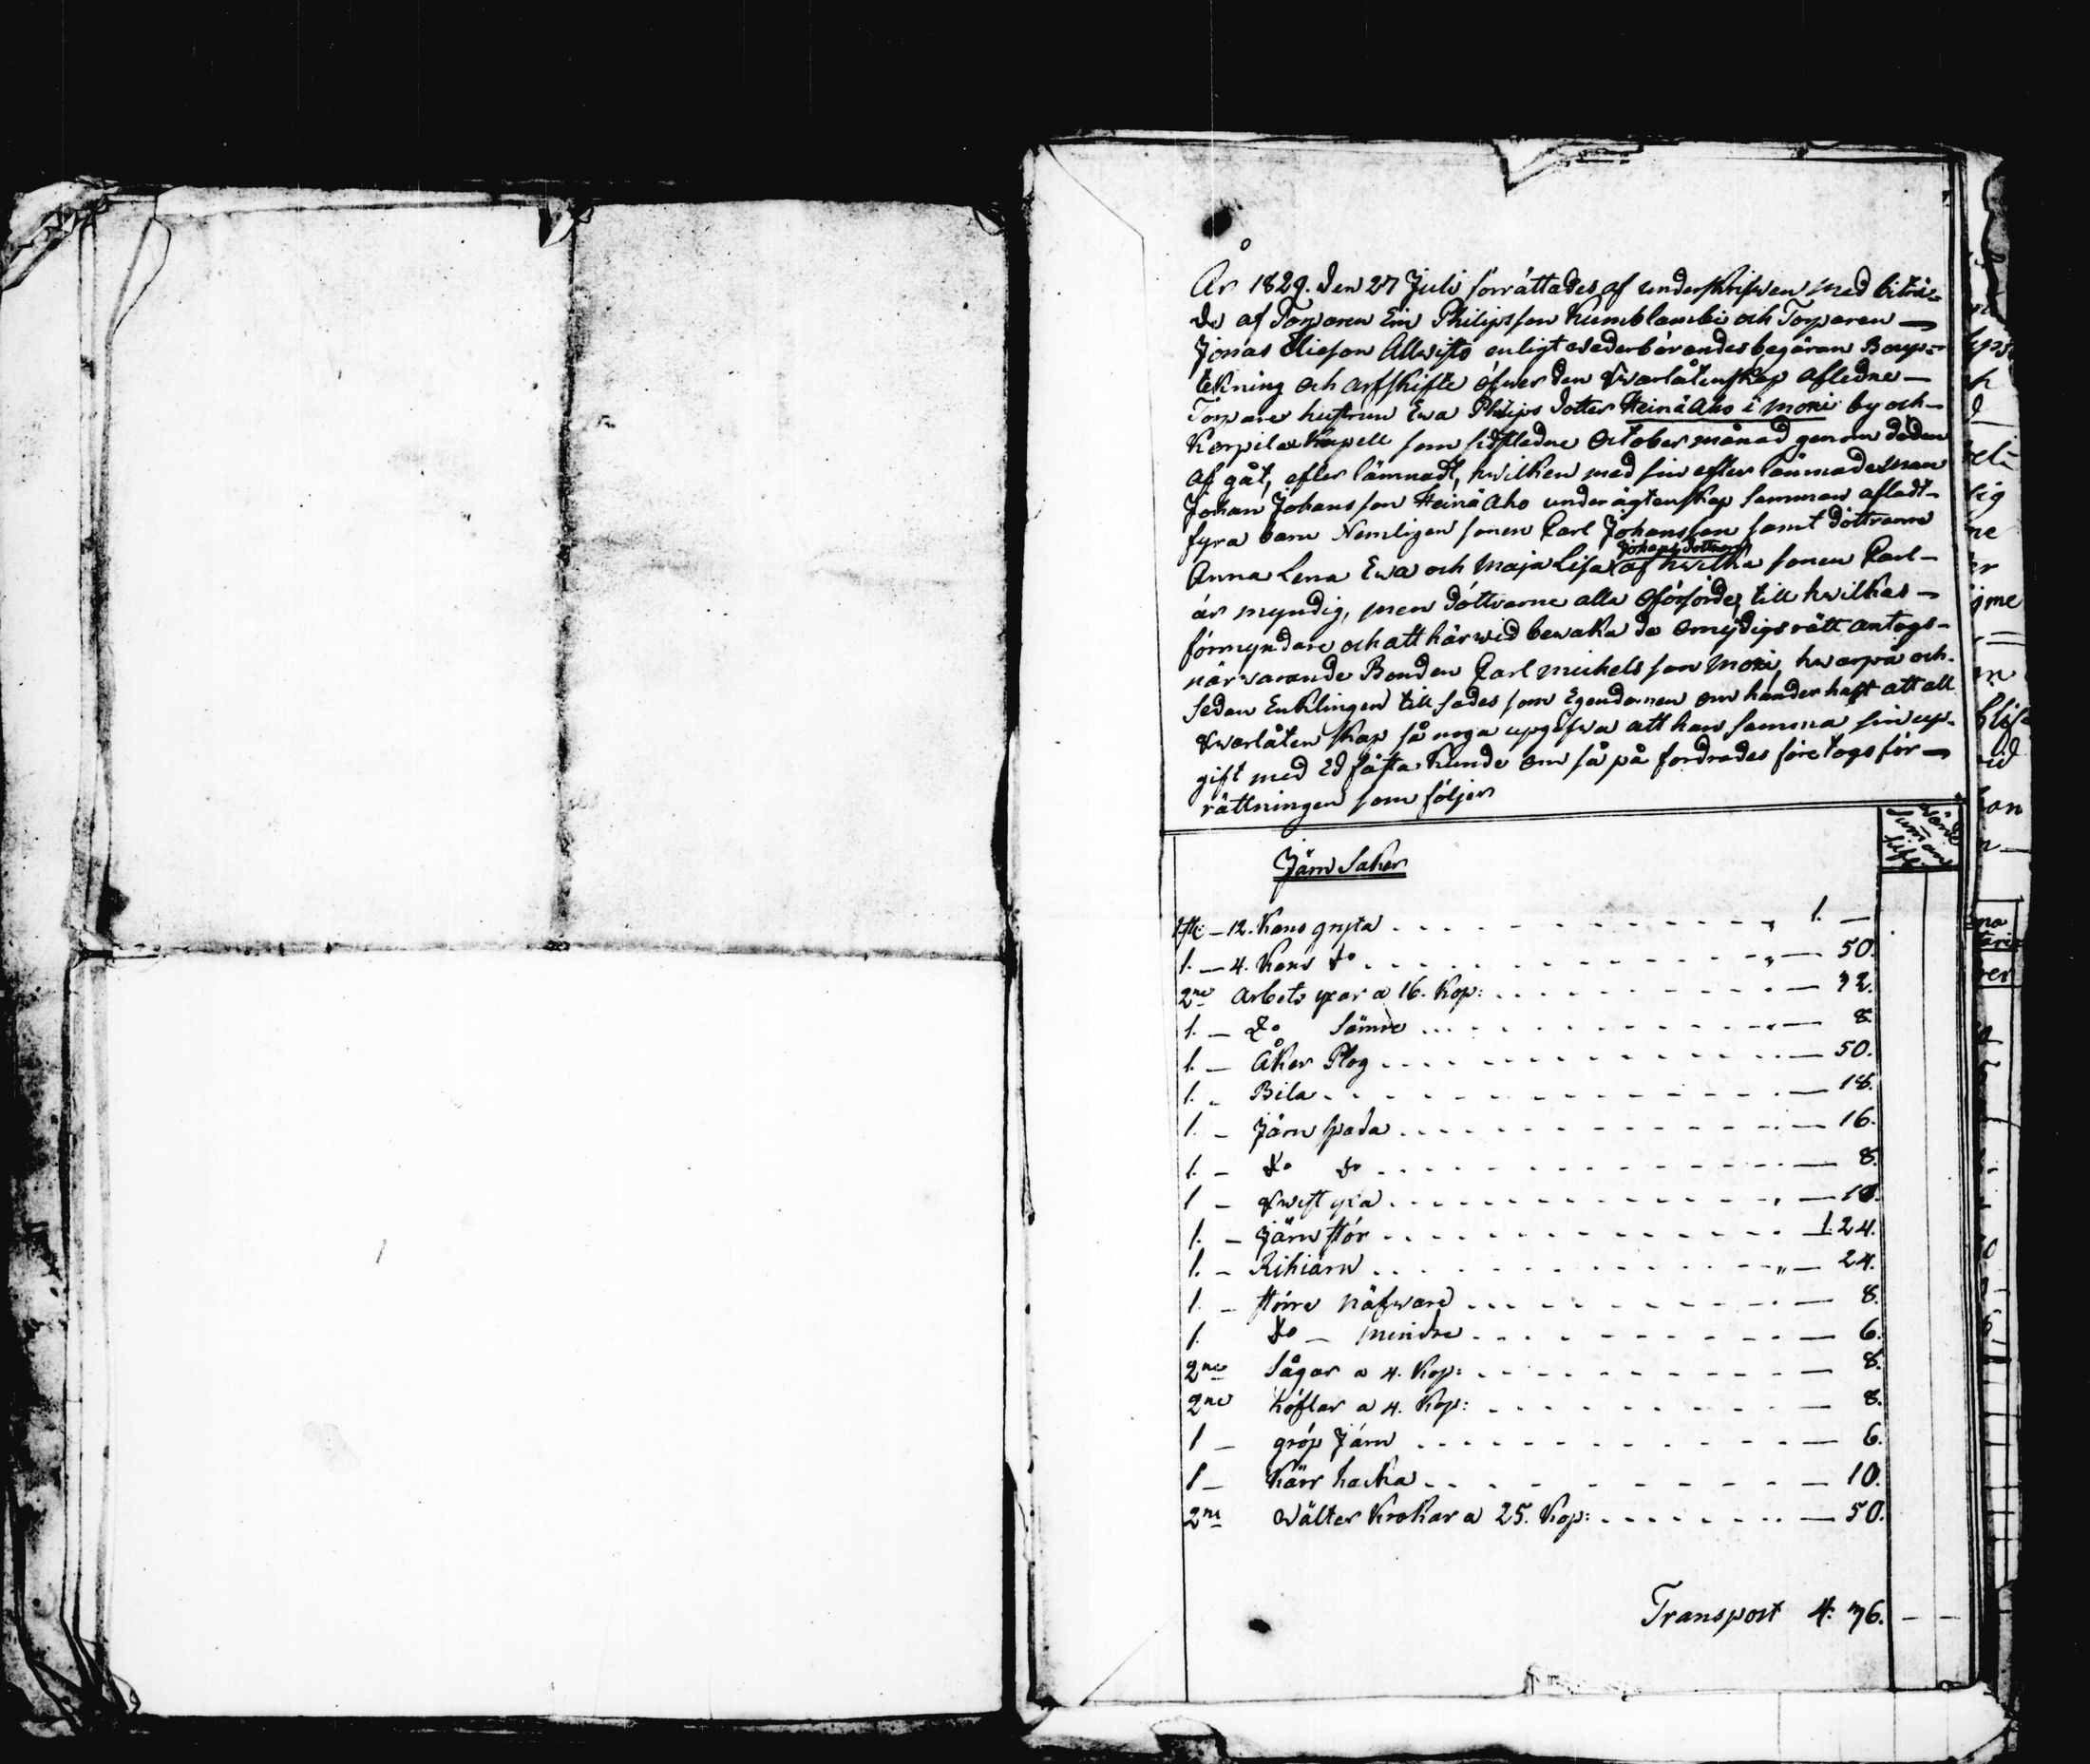 År 1829. den 27 Juli förrättades af underskrifven med biträ-
de af Torparen Eric Philipsson Kumblambi och Torparen
Jonas Eliesson Allvisto enligt wederbörandes begäran Boup-
tekning och arfskifte öfwer den qwarlåtenskap afledne
Torpare hustrun Ewa Philips dotter Heinä Aho i Moxi by och
Korpilax Kapell som sidstledne October månad genom döden
af gåt, efter lämnadt, hwilken med sin efter lämnade man
Johan Johansson Heinä Aho under ägtenskap samman afladt
fyra barn Nemligen sonen Carl Johansson samt döttrarne
Johans döttrar
Anna Lena Ewa och Maja Lisa af hwilka sonen Carl
är myndig, men döttrarne alla oförsörde, till hwilkas
förmyndare och att härwid bewaka de omydigs rätt antogs
närwarande Bonden Carl Mickels son Moxi, hwarpå och
sedan Enklingen till sades som Egendomen om händer haft att all
qwarlåten skap så noga upgifwa att han samma sin up-
gift med Ed fästa kunde om så på fordrades före togs för-
rättningen som följer
wärde
Summan
Silfr
Järn Saker
1 st: – 12. Kans gryta 1. —
1. — 4. Kans do 50.
2ne Arbets yxor a 16. Kop: 32.
1. — do Sämre 8.
1. — Åker Plog 50.
1. – Bila 18.
1. – Järn spada 16.
1. – do do 8.
1 – qwist yxa 10.
1. – Järn stör 1. 24.
1. – Rihiärn 24.
1. – större näfware 8.
1. do – mindre 6.
2ne Sågar a 4. Kop: 8.
2ne höflar a 4. Kop: 8.
1 – gröp Järn 6.
1 – Kärr hacka 10.
2ne wälter Krokar a 25. Kop: 50.
Transport 4. 76.